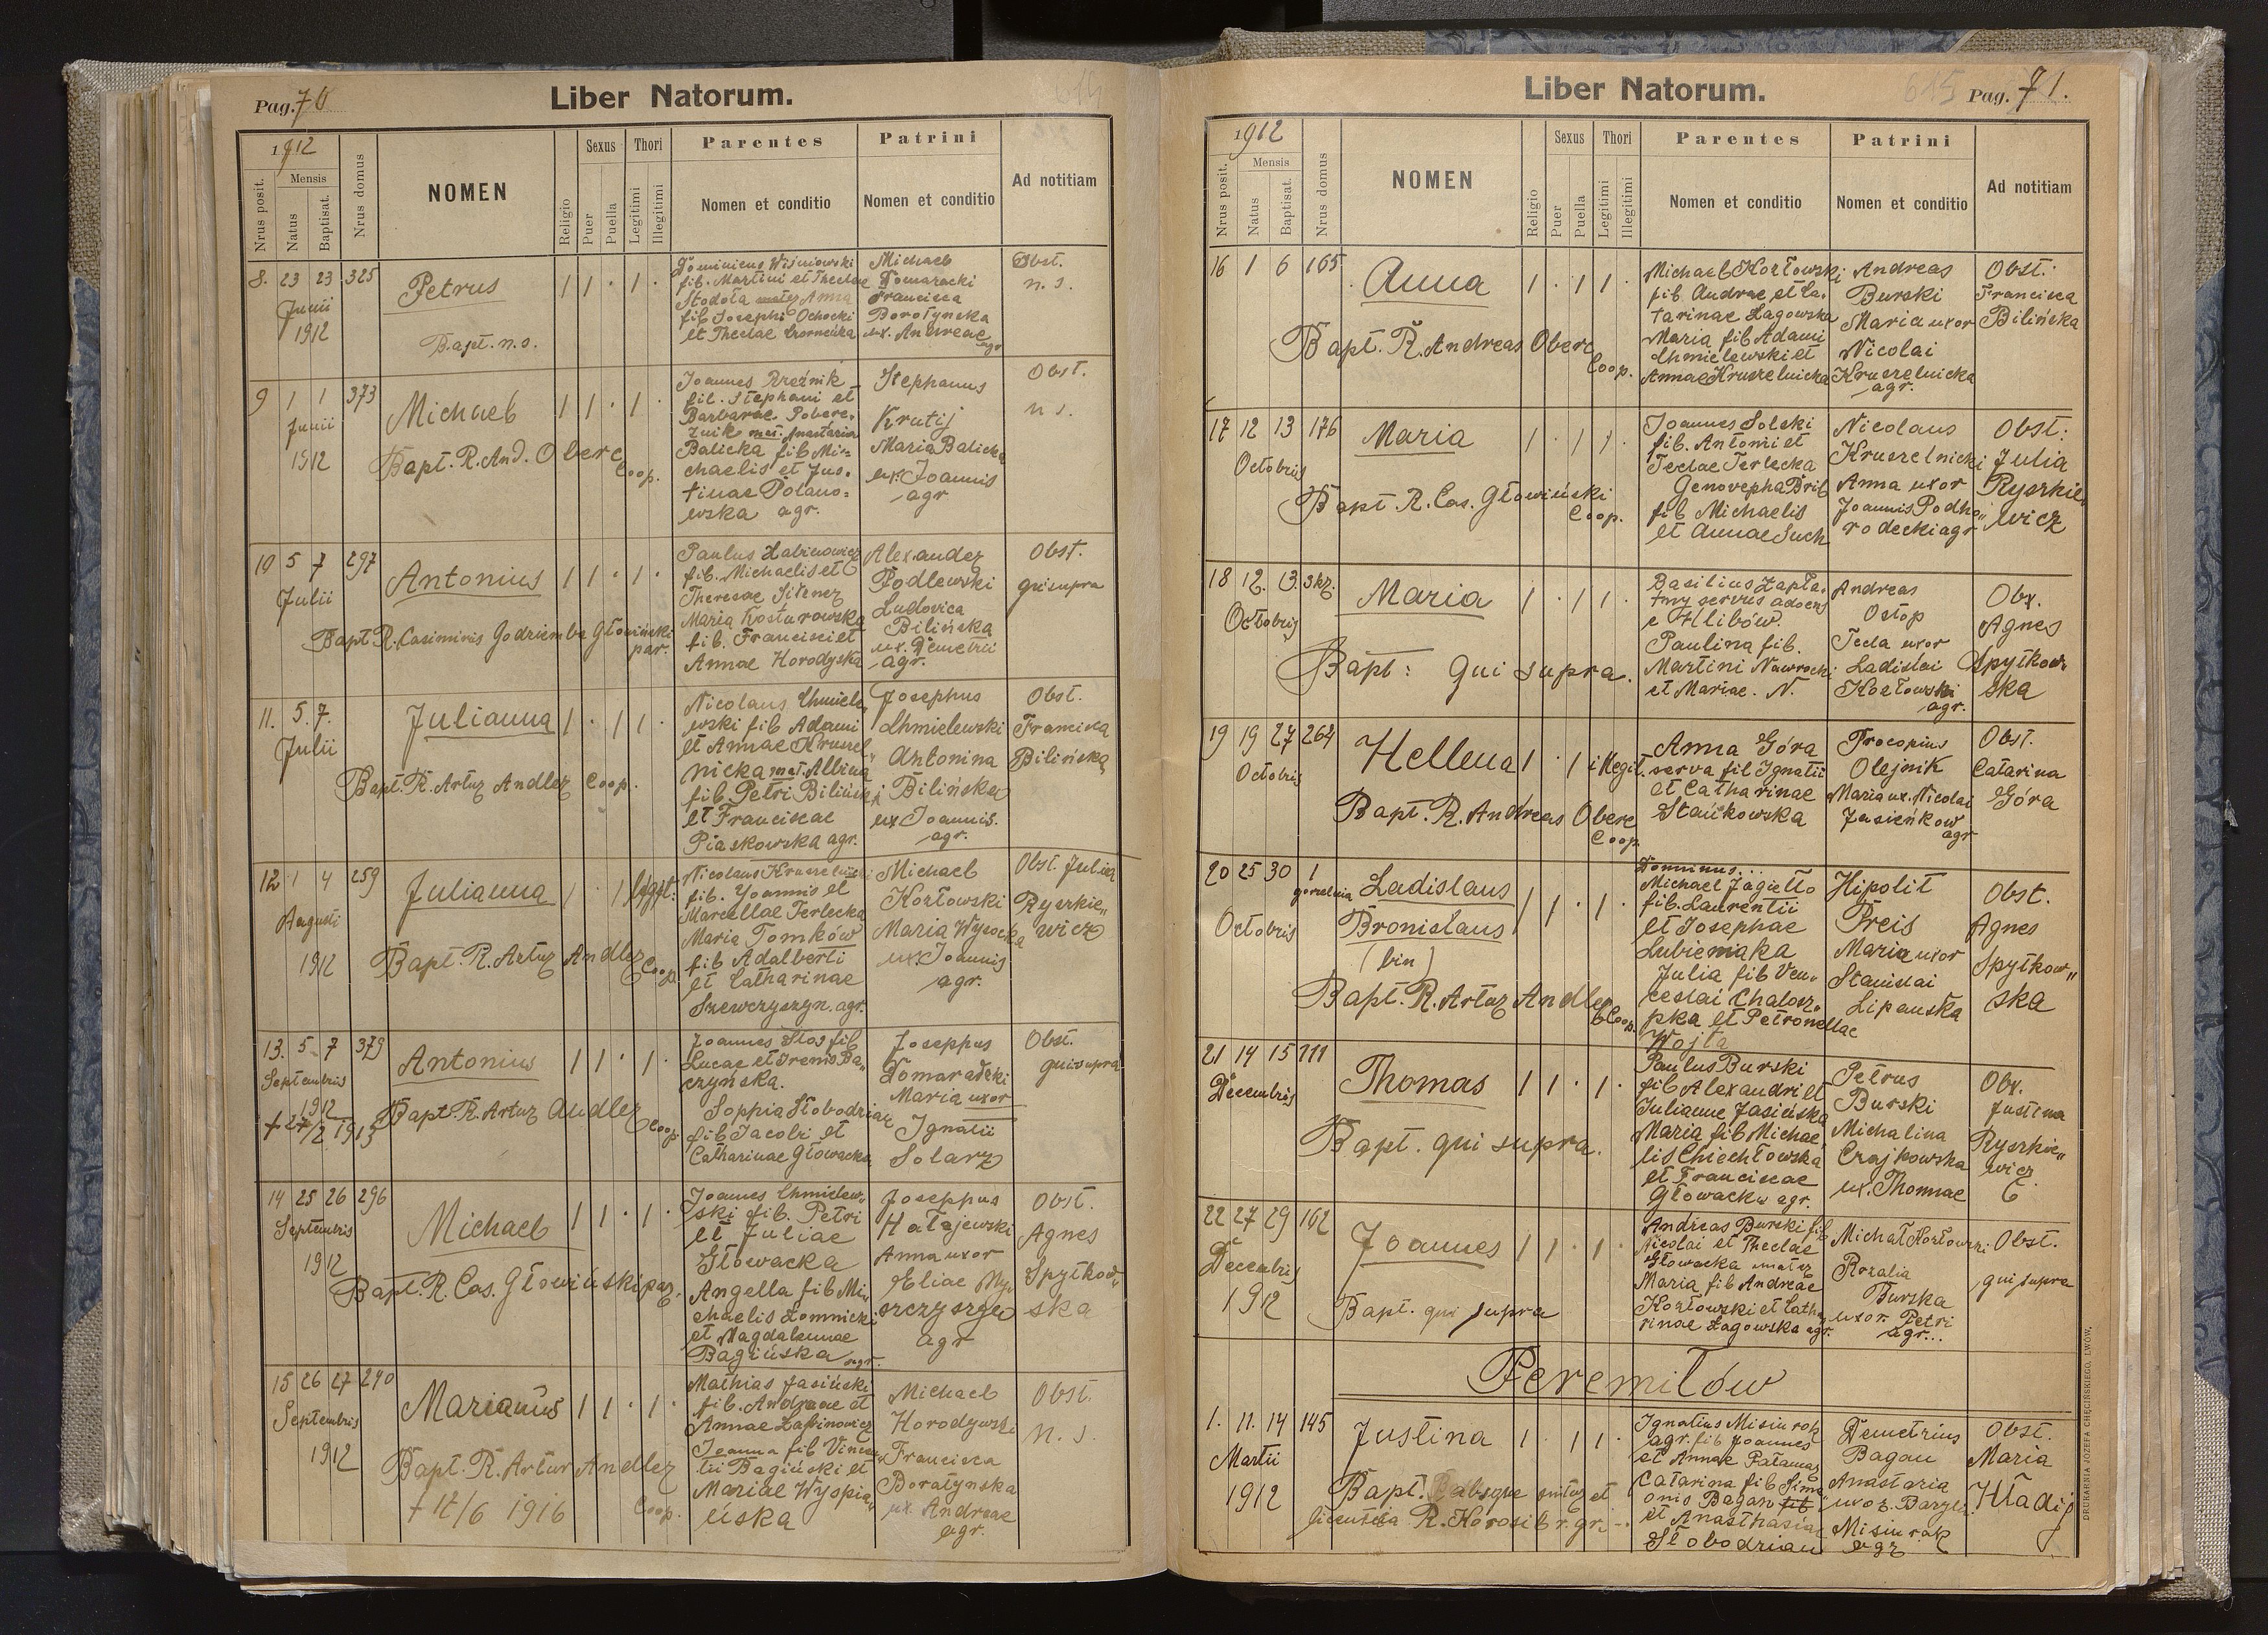 Pag. 70
Liber Natorum.
614
1912
Nrus posit.
Mensis
Natus
Baptisat.
Nrus domus
NOMEN
Religio
Sexus
Puer
Puella
Thori
Legitimi
Illegitimi
Parentes
Nomen et conditio
Patrini
Nomen et conditio
Ad notitiam
8. 23 23 325
Junii
1912
Petrus
Bapt. n. s.
1 1 · 1 ·
Dominicus Wiśniowski
fil. Martini et Theclae
Stodoła mater Anna
fil Josephi Ochocki
et Theclae
Michael
Domaracki
Francisca
Boratynska
ux. Andreae
agr
Obst.
n. s.
9 1 1 373
Junii
1912
Michael
Bapt. R. And. Oberc
Coop.
1 1 · 1 ·
Joannes Rzeźnik
fil. Stephani et
Barbarae Pobere-
znik mat. Anastazia
Balicka fil Mi-
chaelis et Jus-
tinae Polano-
wska agr.
Stephanus
Krutij
Maria Balicka
ux. Joannis
agr
Obst.
n s.
10 5 7 297
Julii
Antonius
Bapt R. Casimirus Godziemba Głowiński
par.
1 1 · 1 ·
Paulus
fil. Michaelis et
Theresae
Maria Kosturowska
fil. Francisci et
Annae Horodyska
Alexander
Podlewski
Ludovica
Bilińska
ux. Demetrii
agr.
Obst.
qui supra
11. 5. 7.
Julii
Julianna
Bapt. R. Artur Andler Coop.
1 · 1 1 ·
Nicolaus Chmiele-
wski fil Adami
et Annae Kruszel
nicka mat. Albina
fil. Petri Biliński
et Franciscae
Piaskowska agr.
Josephus
Chmielewski
Antonina
Bilińska
ux Joannis.
agr.
Obst.
Francisca
Bilińska
12 1 4 259
Augusti
1912
Julianna
Bapt. R. Artur Andler Coop
1 · 1 legit:
Nicolaus Kruszelnicki
fil. Yoannis et
Marcellae Terlecka
Maria Tomków
fil Adalberti
et Catharinae
Szewczyszyn. agr.
Michael
Kozłowski
Maria Wysocka
ux. Joannis
agr.
Obst. Julia
Ryszkie„
wicz
13. 5 7 379
Septembris
1912
† 27/2 1913
Antonius
Bapt. R. Artur Andler Coop
1 1 · 1 ·
Joannes Stos fil
Lucae et Irenis Ba„
czynska.
Sophia Słobodzian
fil Jacobi et
Catharinae Głowacka
Joseppus
Domaradzki
Maria uxor
Ignatii
Solarz
Obst.
qui supra
14 25 26 296
Septembris
1912
Michael
Bapt. R. Cas. Głowiński par.
1 1 · 1 ·
Joannes Chmielew„
ski fil. Petri
et Juliae
Głowacka
Angella fil Mi„
chaelis Łomnicki
et Magdalennae
Bagińska agr.
Joseppus
Hałajewski
Anna uxor
Eliae
agr
Obst.
Agnes
Spytkow„
ska
15 26 27 240
Septembris
1912
Marianus
Bapt. R. Artur Andler
Coop.
† 12/6 1916
1 1 · 1 ·
Mathias Jasiński
fil. Andreae et
Annae
Joanna fil Vincen
tii Bagiński et
Mariae Wyspia„
ńska
Michael
Horodywski
Francisca
Boratynska
ux. Andreae
agr.
Obst.
n. s.
Liber Natorum.
615
Pag. 71.
1912
Nrus posit.
Mensis
Natus
Baptisat.
Nrus domus
NOMEN
Religio
Sexus
Puer
Puella
Thori
Legitimi
Illegitimi
Parentes
Nomen et conditio
Patrini
Nomen et conditio
Ad notitiam
16 1 6 165
Anna
Bapt. R. Andreas Oberc
Coop.
1 · 1 1 ·
Michael Kozłowski
fil. Andrae et Ca-
tarinae Łagowska
Maria fil Adami
Chmielewski et
Annae Kruszelnicka
Andreas
Burski
Maria uxor
Nicolai
Kruszelnicka
agr.
Obst:
Francisca
Bilińska
17 12 13 176
Octobris
Maria
Bapt. R. Cas. Głowiński
Coop.
1 · 1 1 ·
Joannes Solski
fil. Antoni et
Teclae Terlecka
Genovepha Bril
fil Michaelis
et Annae Such
Nicolaus
Kruszelnicki
Anna uxor
Joannis Podho„
rodecki agr
Obst:
Julia
Ryszkie„
wicz
18 12. 13. 3kz.
Octobris
Maria
Bapt: qui supra.
1 · 1 1 ·
Basilius Zapła.
tny servus adoens
e Hlibów.
Paulina fil.
Martini Nawrocki
et Mariae. N.
Andreas
Ostop
Tecla uxor
Ladislai
Kozłowski
agr.
Obs.
Agnes
Spytkow„
ska
19 19 27 264
Octobris
Hellena
Bapt. R. Andreas Oberc
Coop.
1 · 1 illegit.
Anna Góra
serva fil Ignatii
et Catharinae
Stańkowska
Procopius
Olejnik
Maria ux. Nicolai
Jasieńkow
agr
Obst.
Catarina
Góra
20 25 30 1
gorzelnia
Octobris
Ladislaus
Bronislaus
(bin)
Bapt. R. Artur Andler
Coop.
1 1 · 1 ·
Dominus...
Michael Jagiełło
fil. Laurentii
et Josephae
Lubieniaka
Julia fil Ven„
ceslai Chalosz„
pka et Petronellae
Wojta
Hipolit
Preis
Maria uxor
Stanislai
Lipanska
Obst.
Agnes
Spytkow„
ska
21 14 15 111
Decembris
Thomas
Bapt. qui supra.
1 1 · 1 ·
Paulus Burski
fil Alexandri et
Julianne Jasińska
Maria fil Michae
lis Chiechłowska
et Franciscae
Głowacka agr.
Petrus
Burski
Michalina
Czajkowska
ux. Thomae
Obs.
Justina
Ryszkie„
wicz
22 27 29 162
Decembris
1912
Joannes
Bapt. qui supra
1 1 · 1 ·
Andreas Burski fil
Nicolai et Theclae
Głowacka mater
Maria fil Andreae
Kozłowski et Catha
rinae Łagowska agr.
Michał Kozłowski
Rozalia
Burska
uxor. Petri
agr...
Obst.
qui supra
Peremiłów
1. 11. 14 145
Martii
1912
Justina
Bapt. absque et
licentia R. Korosil r. gr. -
1 · 1 1 ·
Ignatius Misiurak
agr. fil Joannes
et Annae Palamar
Catarina fil Sime
onis Bagan fil
et Anasthasiae
Słobodzian
Demetrius
Bagan
Anastazia
uxor.
Misiurak
agr
Obst.
Maria
Hładij
DRUKARNIA JÓZEFA CHĘCIŃSKIEGO, LWÓW.